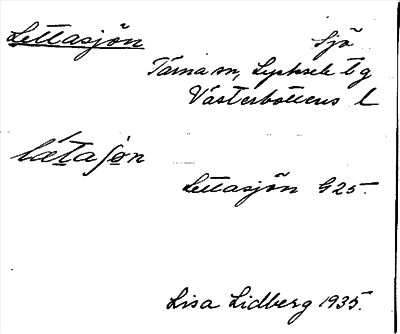 Lettasjön Sjö
Tärna sn, Lycksele tg
Västerbottens l
lætaʃøn
Lettasjön G25.
Lisa Lidberg 1935.